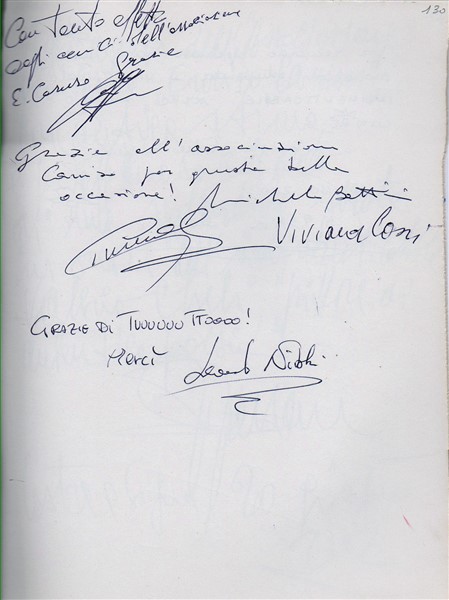 130
Con tanto affetto
agli amici dell'associazione
E. Caruso Grazie
Grazie all'associazione
Caruso per questa bella
occasione! Michele Bettini
Viviana
GRAZIE DI TUUUUUU TTOOOO!
Mercì